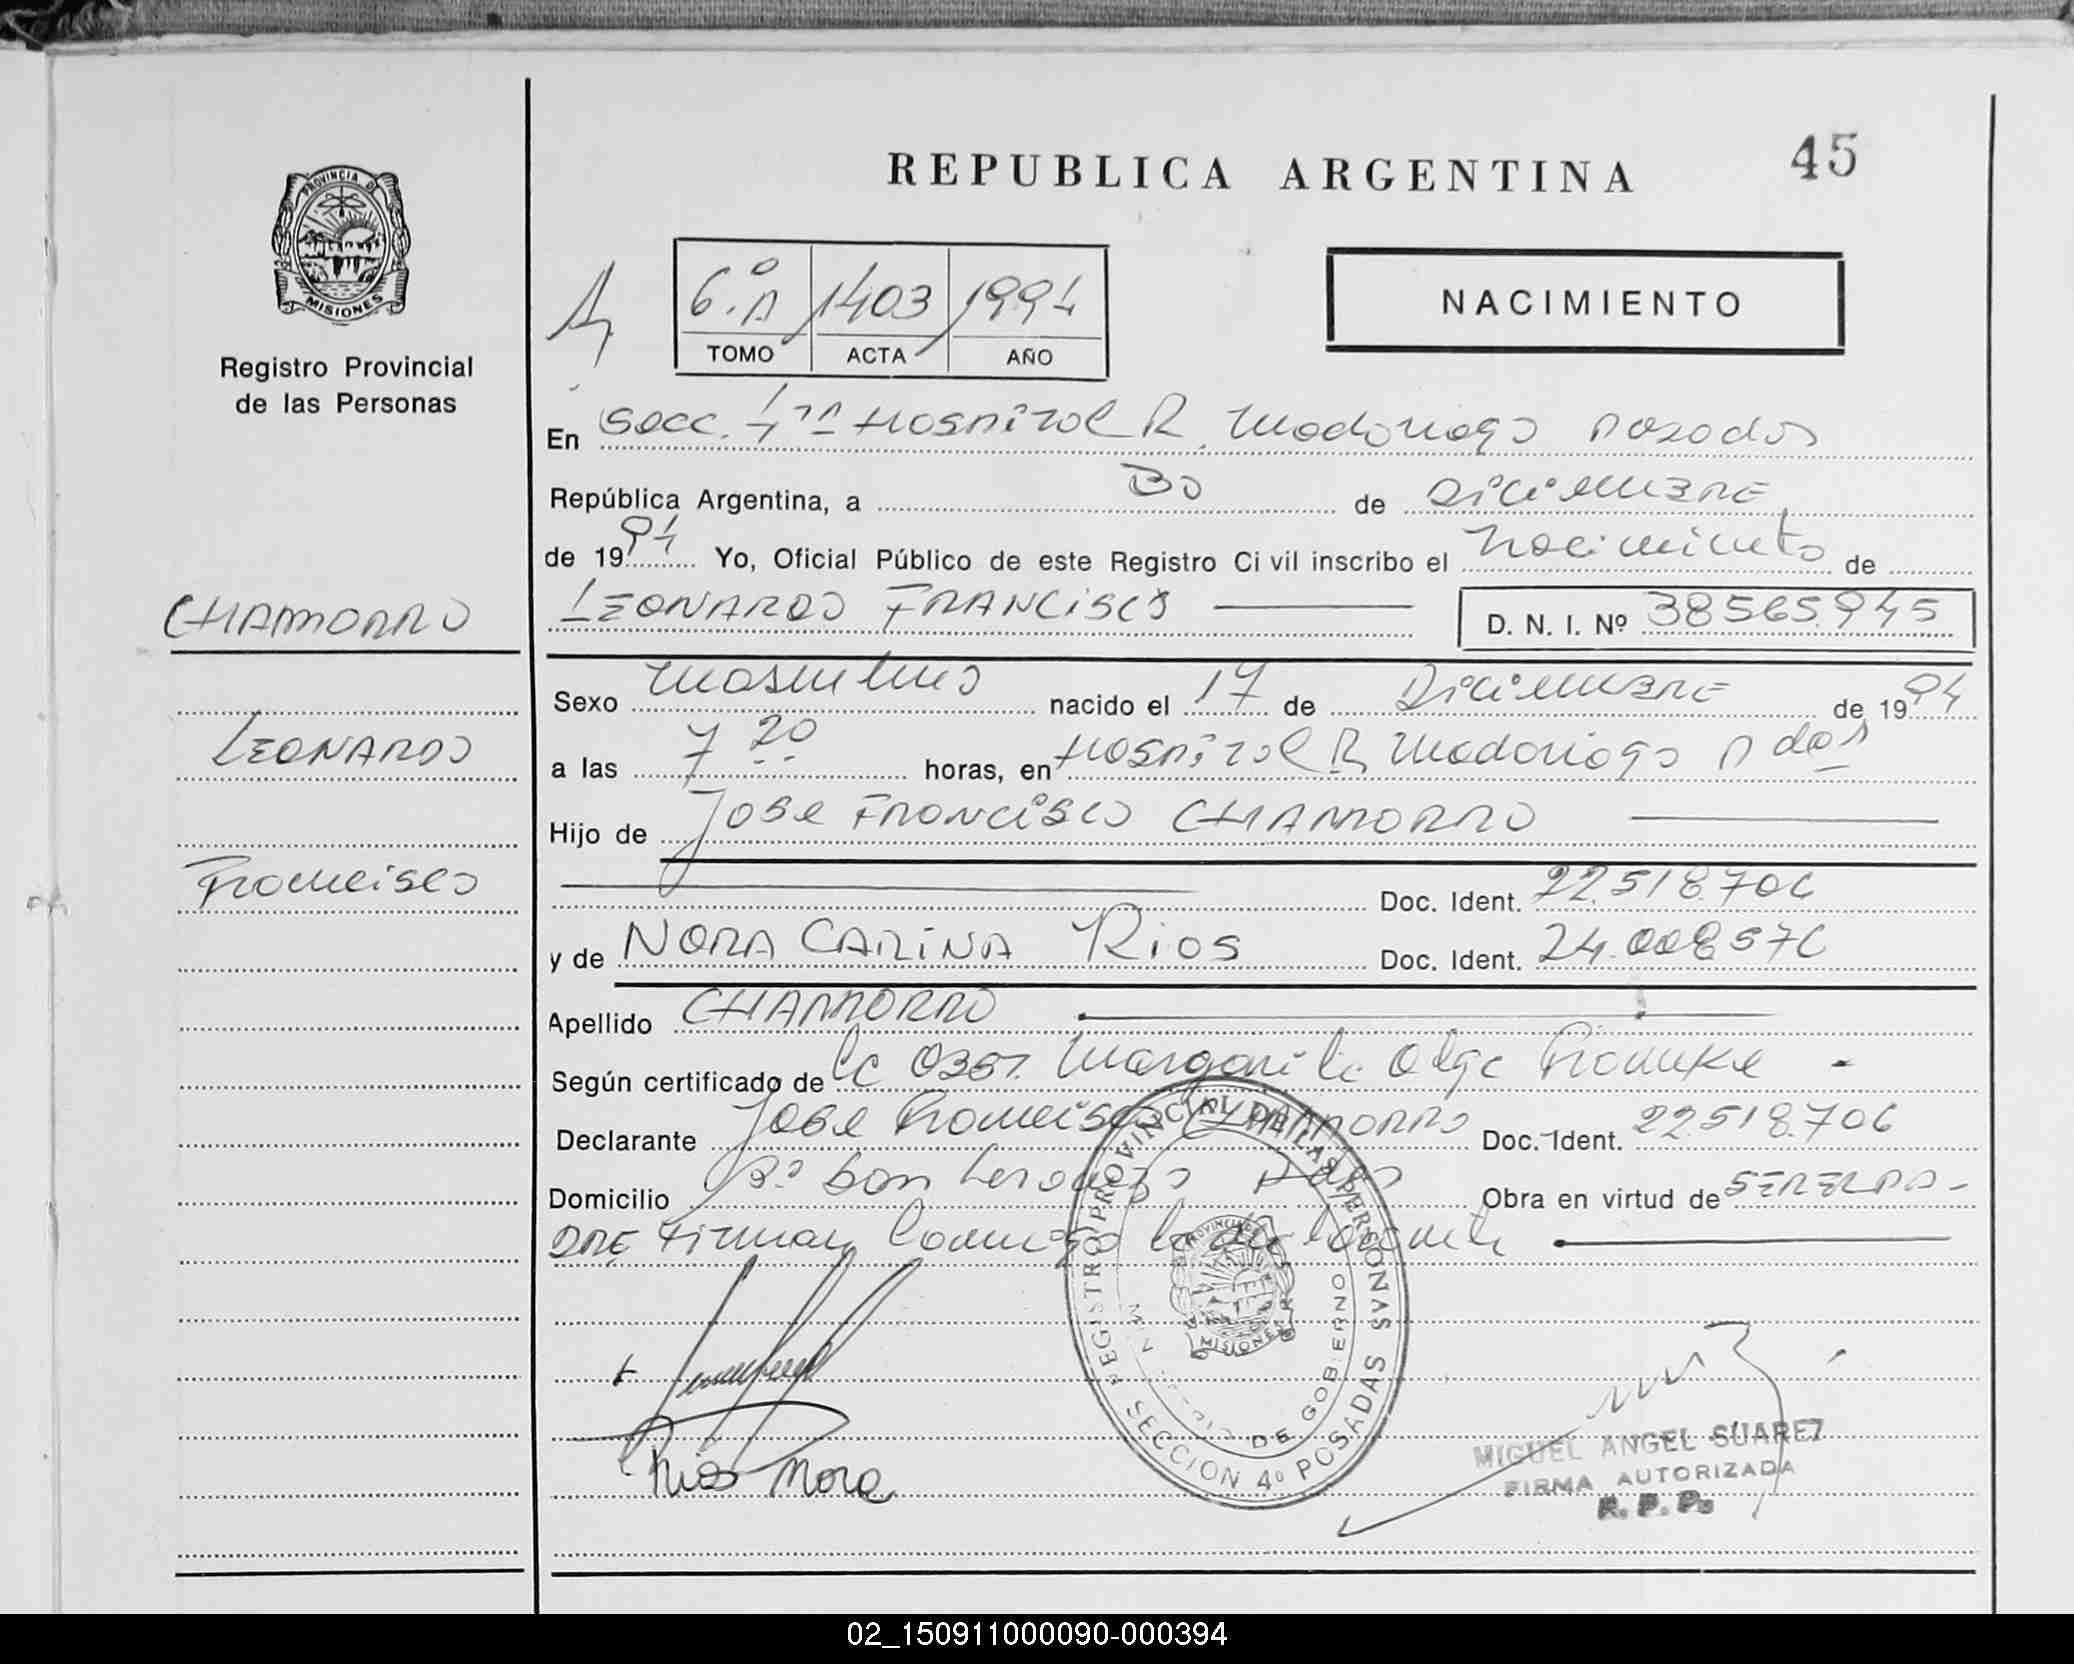 REPUBLICA ARGENTINA
45
PROVINCIA DE MISIONES
Registro Provincial
de las Personas
6º A 1403 1994
TOMO ACTA AÑO
NACIMIENTO
En Secc. 4ta Hospital R. Madariaga Posadas
República Argentina, a 30 de Diciembre
de 1994 Yo, Oficial Público de este Registro Civil inscribo el nacimiento de
CHAMORRO
LEONARDO FRANCISCO
D. N. I. Nº 38565945
Sexo masculino nacido el 17 de Diciembre de 1994
LEONARDO
a las 7 20 horas, en Hospital R Madariaga Pdas
Hijo de Jose Francisco CHAMORRO
Francisco
Doc. Ident. 22.518.706
y de NORA CARINA Rios Doc. Ident. 24.008576
Apellido CHAMORRO
Según certificado de la Obst. Margarita Olga
Declarante Jose Francisco CHAMORRO Doc. Ident. 22518.706
Domicilio Bº San Pdas Obra en virtud de SER EL PA-
DRE Firman Conmigo
REGISTRO PROVINCIAL DE LAS PERSONAS
DE GOBIERNO
MISIONES
SECCION 4º POSADAS
Rios Nora
MIGUEL ANGEL SUAREZ
FIRMA AUTORIZADA
R. P. P.
02_150911000090-000394